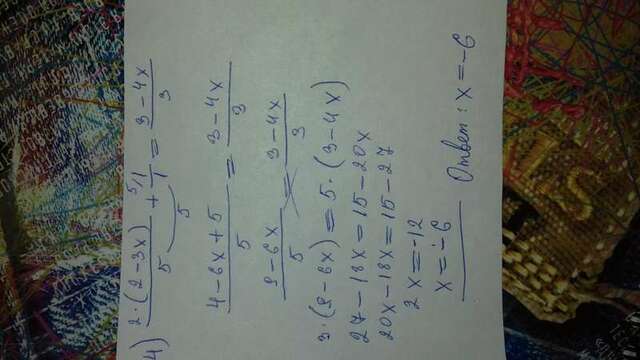 4) 2·(2-3x)/5 + ⁵/1/1 = 3-4x/3
5
4-6x+5/5 = 3-4x/3
9-6x/5 = 3-4x/3
3·(9-6x) = 5·(3-4x)
27-18x = 15-20x
20x-18x = 15-27
2x = -12
x = -6
Ответ: x = -6